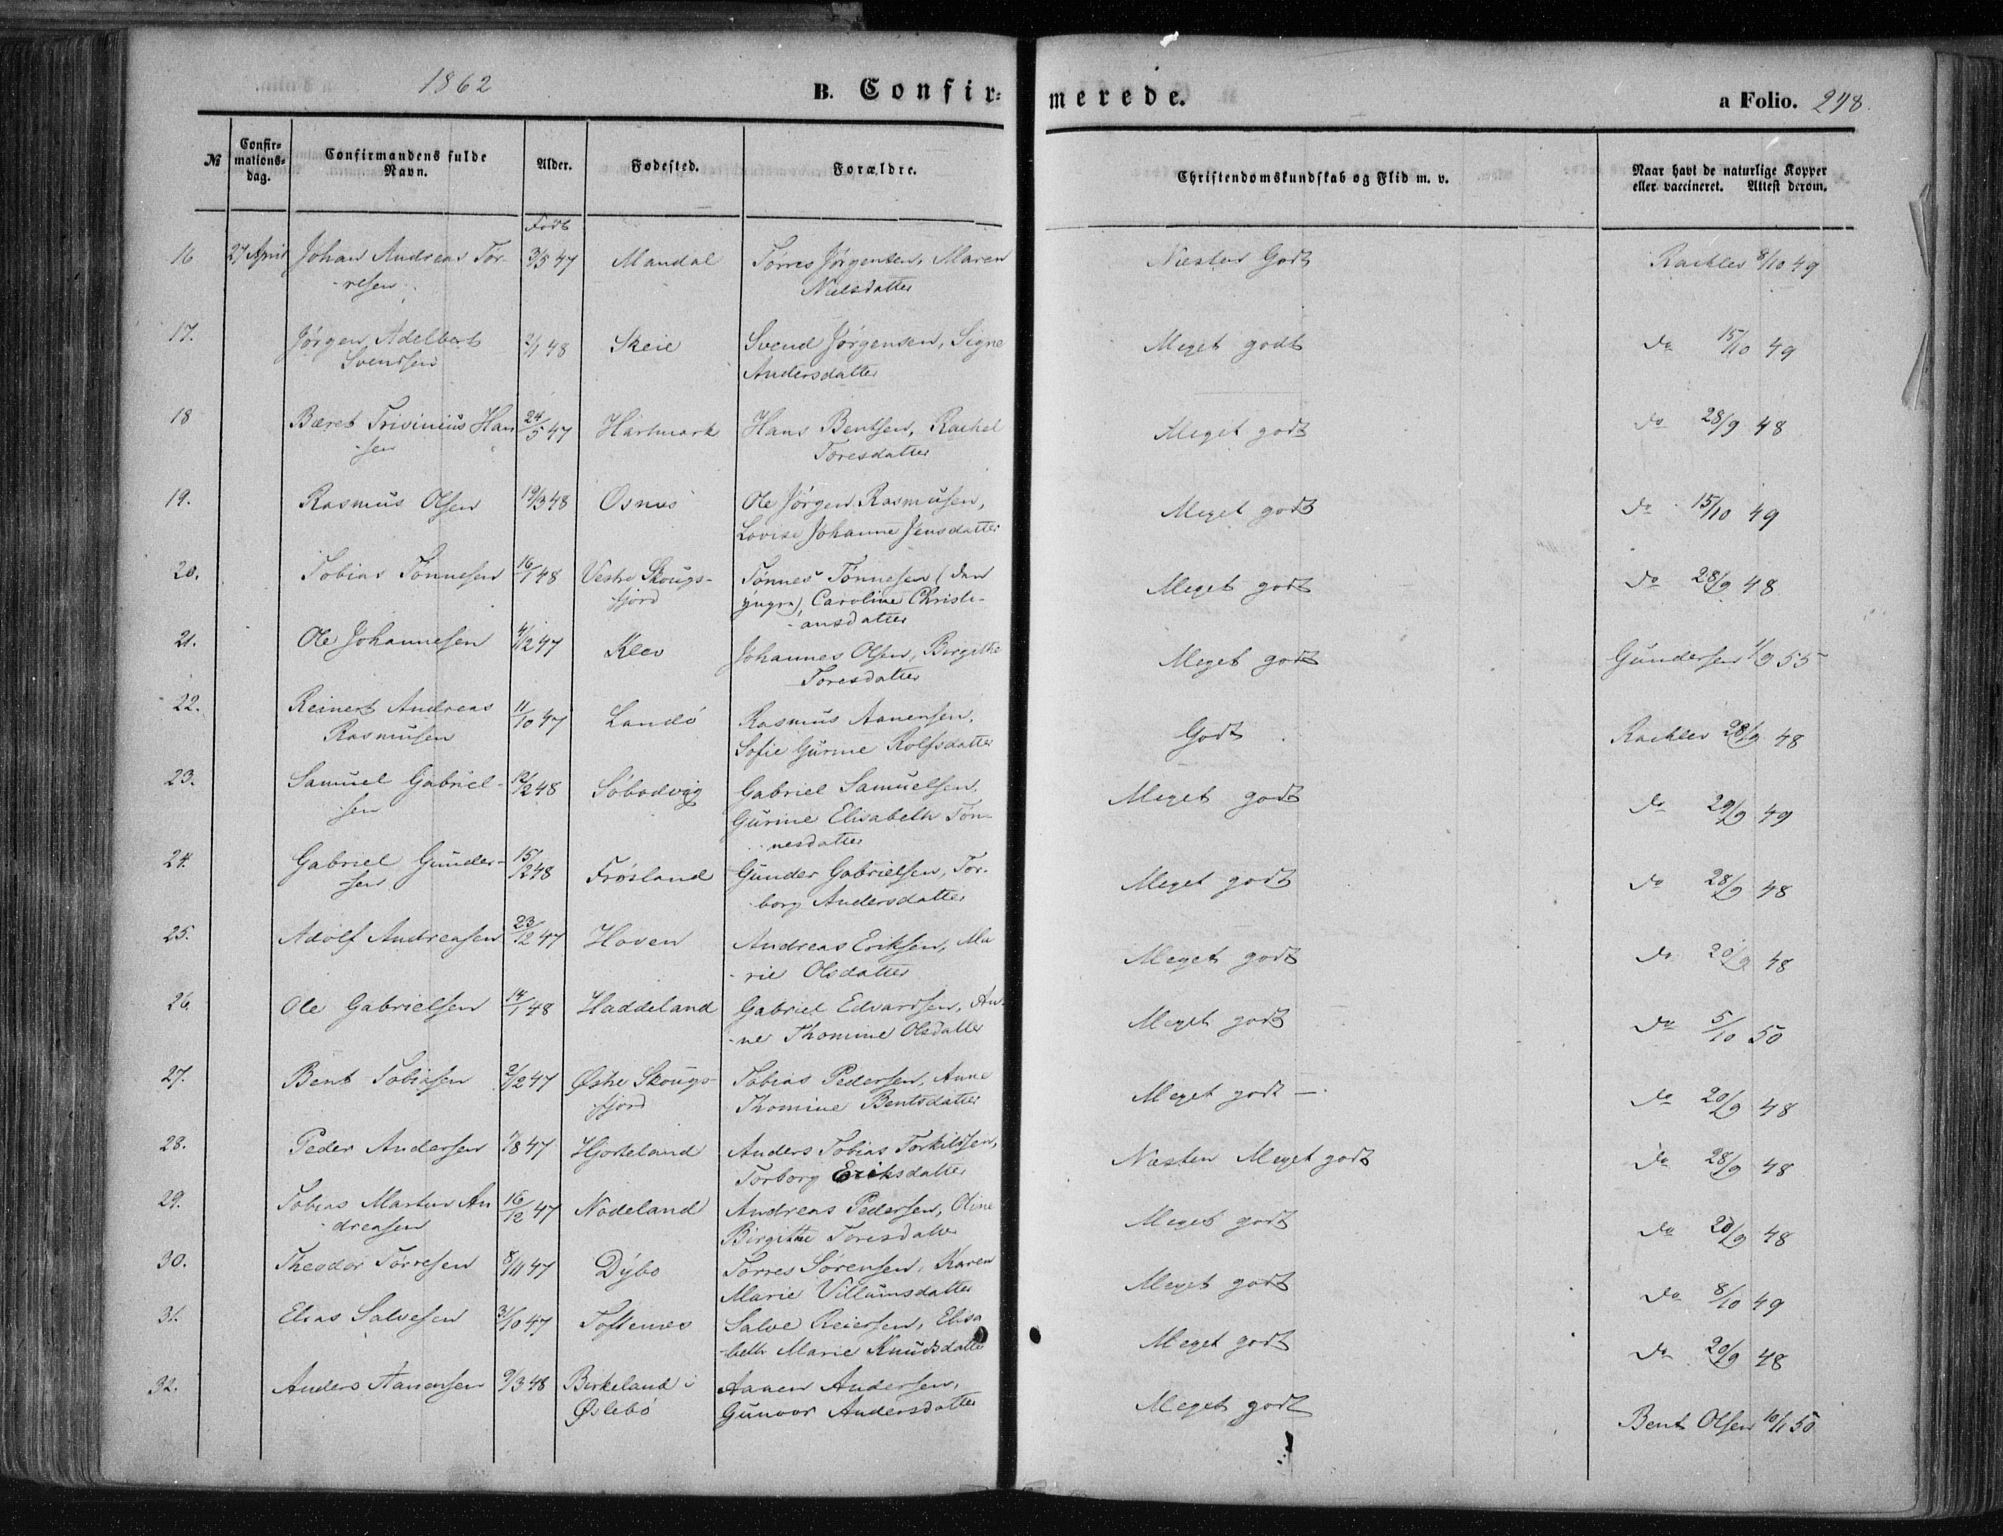 1862
B. Confir=
merede.
a Folio. 248.
№
Confir=
mations=
dag.
Confirmandens fulde
Navn.
Alder.
Fødested.
Forældre.
Christendomskundskab og Flid m. v.
Naar havt de naturlige Kopper
eller vaccineret. Attest derom.
Født
16 27 April Johan Andreas Tør- 3/5 47 Mandal Tørres Jørgensen, Maren Næsten Godt 8/10 49
-resen Nielsdatter
17. Jørgen Adelbert 2/1 48 Skeie Svend Jørgensen, Signe Meget godt do 15/10 49
Svendsen Andersdatter
18 Bæret Trivinius Han 24/5 47 Hartmark Hans Bentsen, Rachel Meget godt do 28/9 48
-sen Toresdatter
19. Rasmus Olsen 19/3 48 Osnes Ole Jørgen Rasmusen, Meget godt do 15/10 49
Lovise Johanne Jensdatter
20. Tobias Tønnesen 16/1 48 Vestre Skougs- Tønnes Tønnesen (den Meget godt do 28/9 48
fjord yngre), Caroline Christi-
-ansdatter
21. Ole Johannesen 4/12 47 Klev Johannes Olsen, Birgithe Meget godt Gundersen 1/9 55
Toresdatter
22. Reinert Andreas 11/10 47 Landø Rasmus Aanensen, Godt 28/9 48
Rasmusen Sofie Gurine Rolfsdatter
23. Samuel Gabriel- 12/2 48 Gabriel Samuelsen, Meget godt do 29/9 49
-sen Gurine Elisabeth Tøn-
nesdatter
24. Gabriel Gunder- 15/2 48 Frøsland Gunder Gabrielsen, Tor- Meget godt do 28/9 48
-sen borg Andersdatter
25. Adolf Andreasen 23/12 47 Hoven Andreas Eriksen, Ma Meget godt do 20/9 48
-rie Olsdatter
26. Ole Gabrielsen 14/1 48 Haddeland Gabriel Edvardsen, An- Meget godt do 5/10 50
-ne Thomine Olsdatter
27. Bent Tobiasen 2/12 47 Østre Skougs- Tobias Pedersen, Anne Meget godt — do 20/9 48
fjord Thomine Bentsdatter
28. Peder Andersen 7/8 47 Hjorteland Anders Tobias Torkildsen, Næsten Meget godt do 28/9 48
Torborg Eriksdatter
29. Tobias Martin An 16/12 47 Nodeland Andreas Pedersen, Oline Meget godt do 20/9 48
-dreasen Birgithe Toresdatter
30. Theodor Tørresen 8/11 47 Dybo Tørres Sørensen, Karen Meget godt do 8/10 49
Marie Villumsdatter
31. Elias Salvesen 31/10 47 Toftenes Salve Reiersen, Elisa Meget godt do 20/9 48
-beth Marie Knudsdatter
32. Anders Aanensen 9/3 48 Birkeland i Aanen Andersen, Meget godt Bent Olsen 10/11 50
Øslebø Gunvor Andersdatter